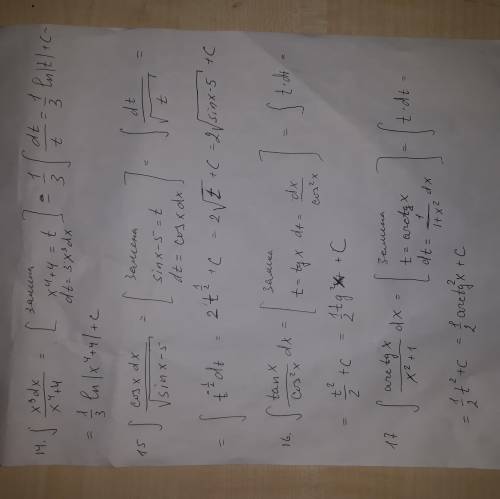 14. ∫ x³dx / x⁴+4 = [ замена x⁴+4=t dt=3x³dx ] = 1/3 ∫ dt/t = 1/3 ln|t|+C=
= 1/3 ln|x⁴+4|+C
15 ∫ cosx dx / √(sinx-5) = [ замена sinx-5=t dt=cosxdx ] = ∫ dt/√t =
= ∫ t^(-1/2) dt = 2t^(1/2) +C = 2√t +C = 2√(sinx-5) +C
16. ∫ tanx / cos²x dx = [ замена t=tgx dt= dx/cos²x ] = ∫ t·dt =
= t²/2 +C = 1/2 tg²x + C
17 ∫ arctgx / x²+1 dx = [ замена t=arctgx dt= 1/1+x² dx ] = ∫ t·dt =
= 1/2 t² +C = 1/2 arctg²x +C